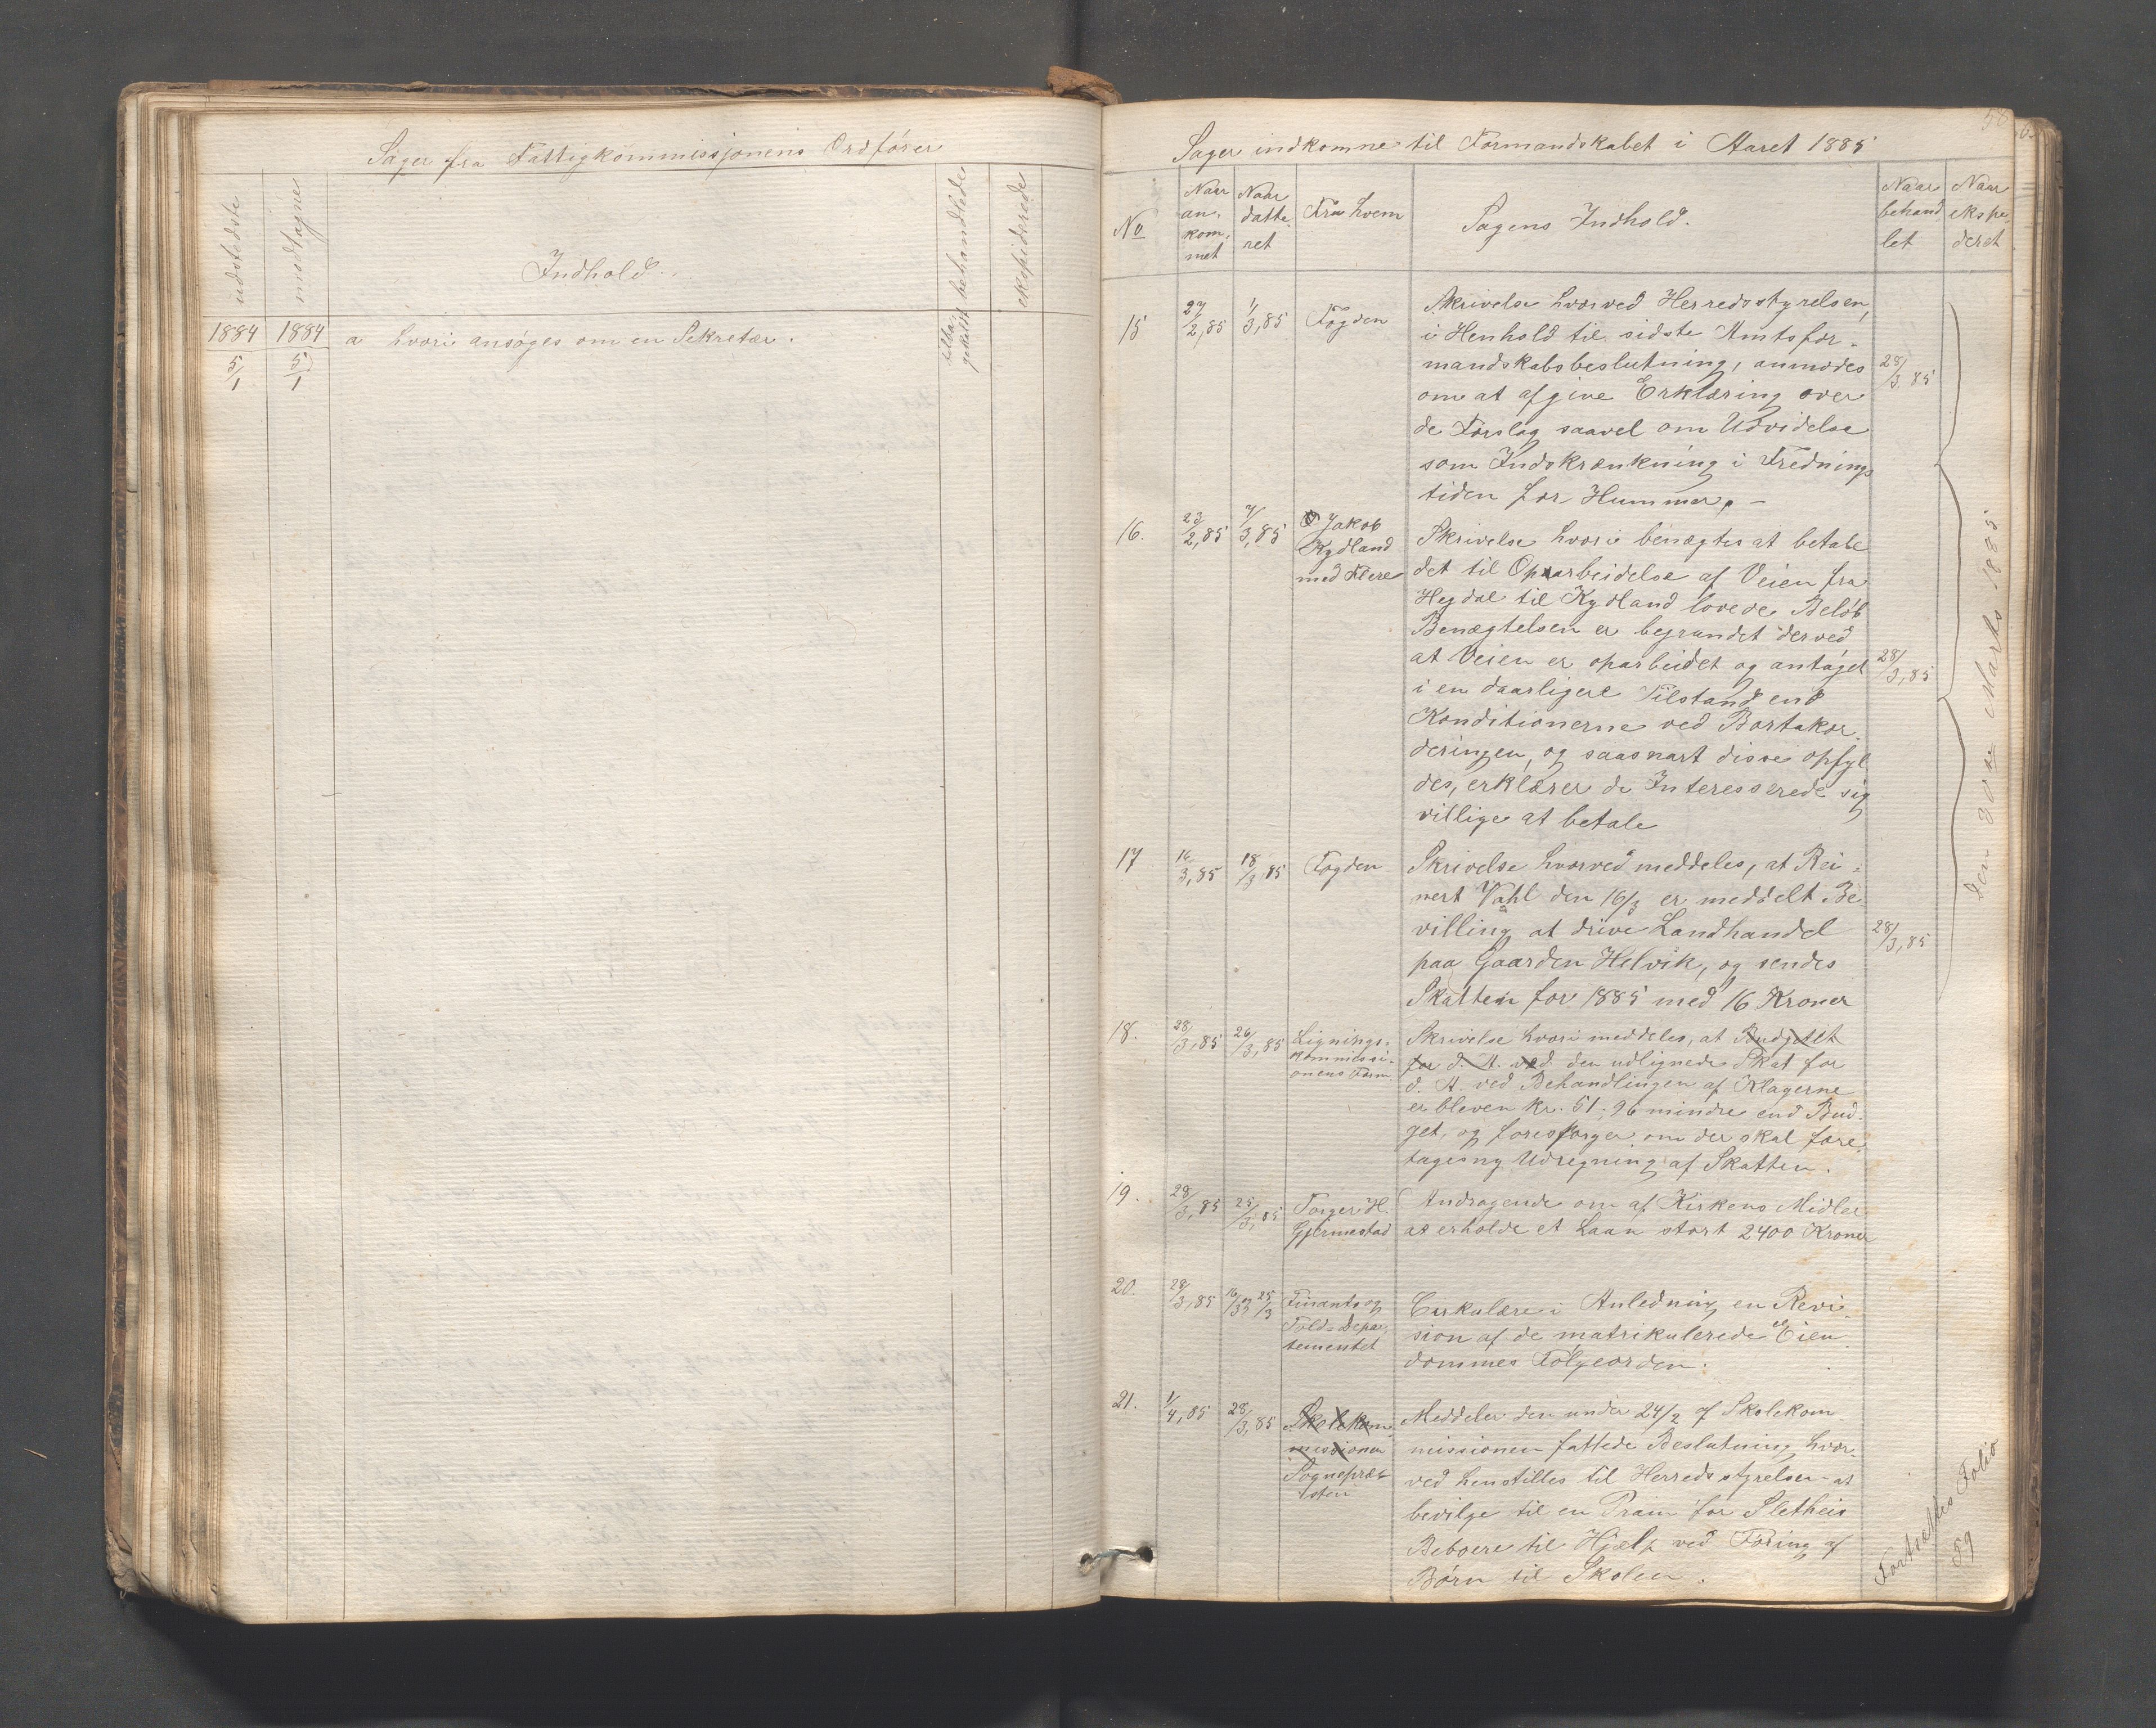 Sager fra Fattigkommissjonens Ordfører
udstedste
modtagne
Indhold.
behandlede
ekspiderede
1884
5/1
1884
5/1
a hvori ansøges om en Sekretær.
58
Sager indkomne til Formandskabet i Aaret 1885
No
Naar
an-
kom-
met
Naar
datte-
ret
Fra hvem
Sagens Indhold.
Naar
behand
let
Naar
ekspe
deret
15
27/2,85
1/3,85
Fogden
Skrivelse hvorved Herredsstyrelsen,
i Henhold til sidste Amtsfor-
mandskabsbeslutning, anmodes
om at afgive Erklæring over
de Forslag saavel om Udvidelse
som Indskrænkning i Frednings
tiden for Hummer. -
28/3 85
16.
23/2,85
7/3,85
Jakob
Kydland
med Flere
Skrivelse hvori benægtes at betale
det til Oparbeidelse af Veien fra
Hegdal til Kydland lovede Beløb
Benægtelsen er begrundet derved
at Veien er oparbeidet og antaget
i en daarligere Tilstand end
Konditionerne ved Bortakor-
deringen, og saasnart disse opfyl
des, erklærer de Interesserede sig
villige at betale
28/3,85
17
16/3,85
18/3,85
Fogden
Skrivelse hvorved meddeles, at Rei-
nert Vahl den 16/3 er meddelt Be-
villing at drive Landhandel
paa Gaarden Helvik, og sendes
Skatten for 1885 med 16 Kroner
28/3,85
den 30te Marts 1885
18.
28/3,85
26/3,85
Lignings-
kommissi-
onens Form
Skrivelse hvori meddeles, at Budjetet
for d. A. ved den udlignede Skat for
d. A. ved Behandlingen af Klagerne
er bleven kr. 51,96 mindre end Bud-
get, og forespørger om der skal fore
tages ny Udregning af Skatten.
19.
28/3,85
25/3,85
Torger H.
Gjermestad
Andragende om af Kirkens Midler
at erholde et Laan stort 2400 Kroner
20.
28/3,85
16/3 og 25/3
Finants og
Told-Depar
tementet
Cirkulære i Anledning en Revi-
sion af de matrikulerede Eien
dommes Følgeorden.
21.
1/4,85
28/3,85
Skolekom
missionen
Sognepræ
sten
Meddeler den under 24/2 af Skolekom-
missionen fattede Beslutning hvor-
ved henstilles til Herredsstyrelsen at
bevilge til en Pram for Sletheis
Beboere til Hjælp ved Føring af
Børn til Skolen.
Fortsættes Folio
59